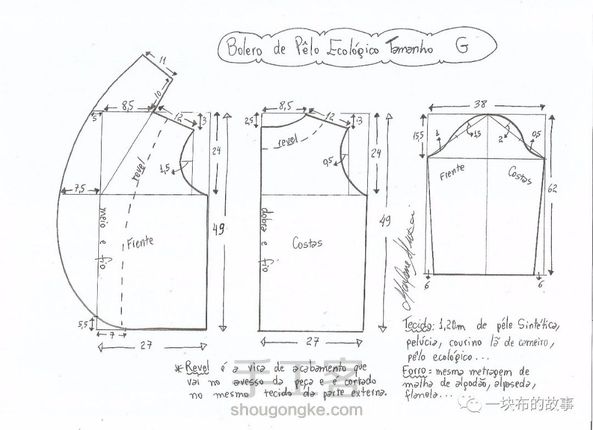 Bolero de Pêlo Ecológico Tamanho G
11
10
8,5
12
3
3
24
1,5
revel
7,5
meio e fio
Frente
49
5,5
7
27
8,5
2,5
12
3
revel
0,5
24
dobra e fio
Costas
49
27
38
15,5
1
1,5
2
0,5
Frente
Costas
62
6
6
Tecido: 1,20m de pêlo Sintético,
pelúcia, courino lã de carneiro,
pêlo ecológico...
Forro: mesma metragem de
malha de algodão,
flanela...
* Revel é a vira de acabamento que
vai no avesso da peça e é cortado
no mesmo tecido da parte externa.
手工客
shougongke.com
一块布的故事